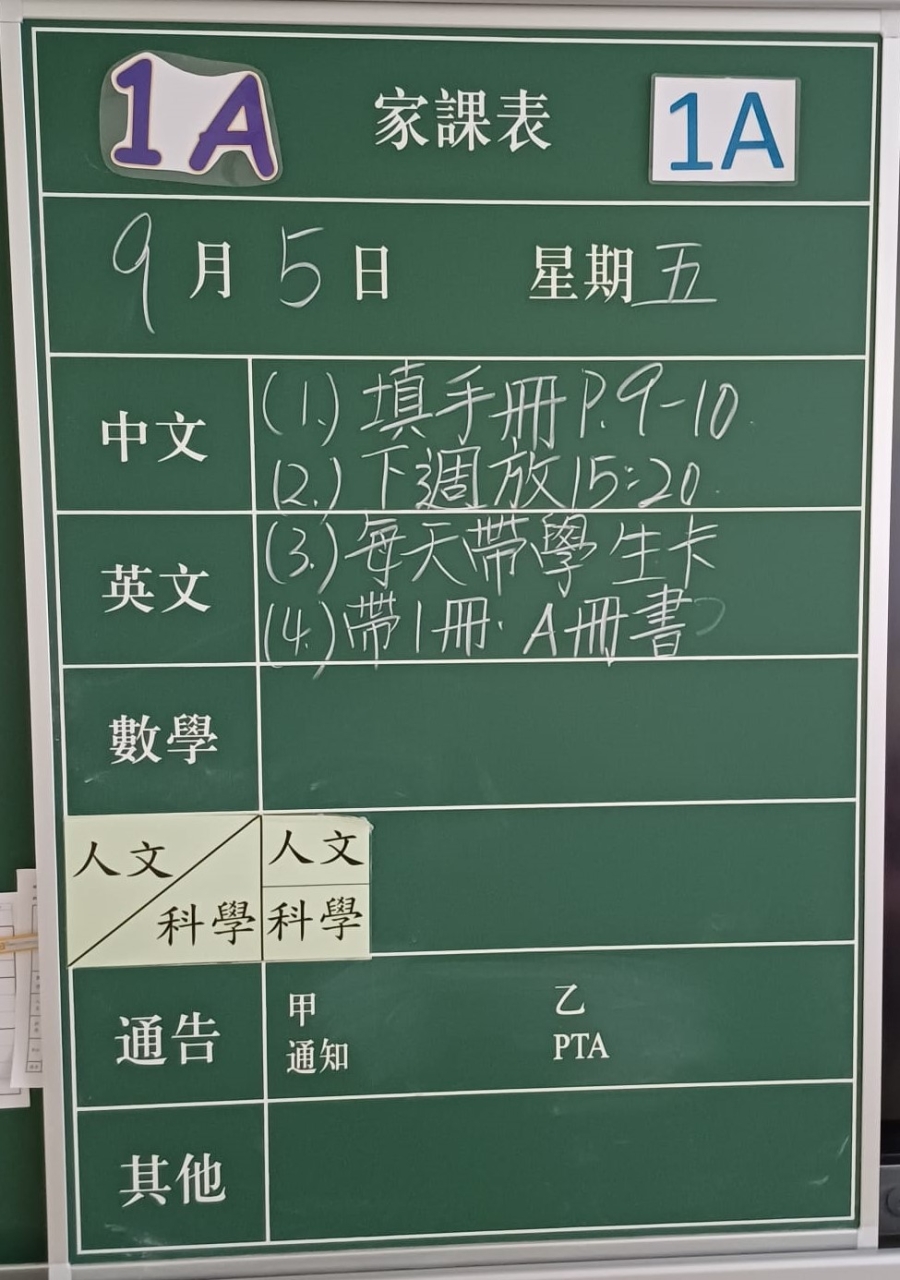 1A 家課表 1A
9月5日 星期五
中文
(1.) 填手冊P.9-10.
(2.) 下週放15:20.
英文
(3.) 每天帶學生卡
(4.) 帶1冊. A冊書
數學
人文 科學
人文
科學
通告
甲 乙
通知 PTA
其他